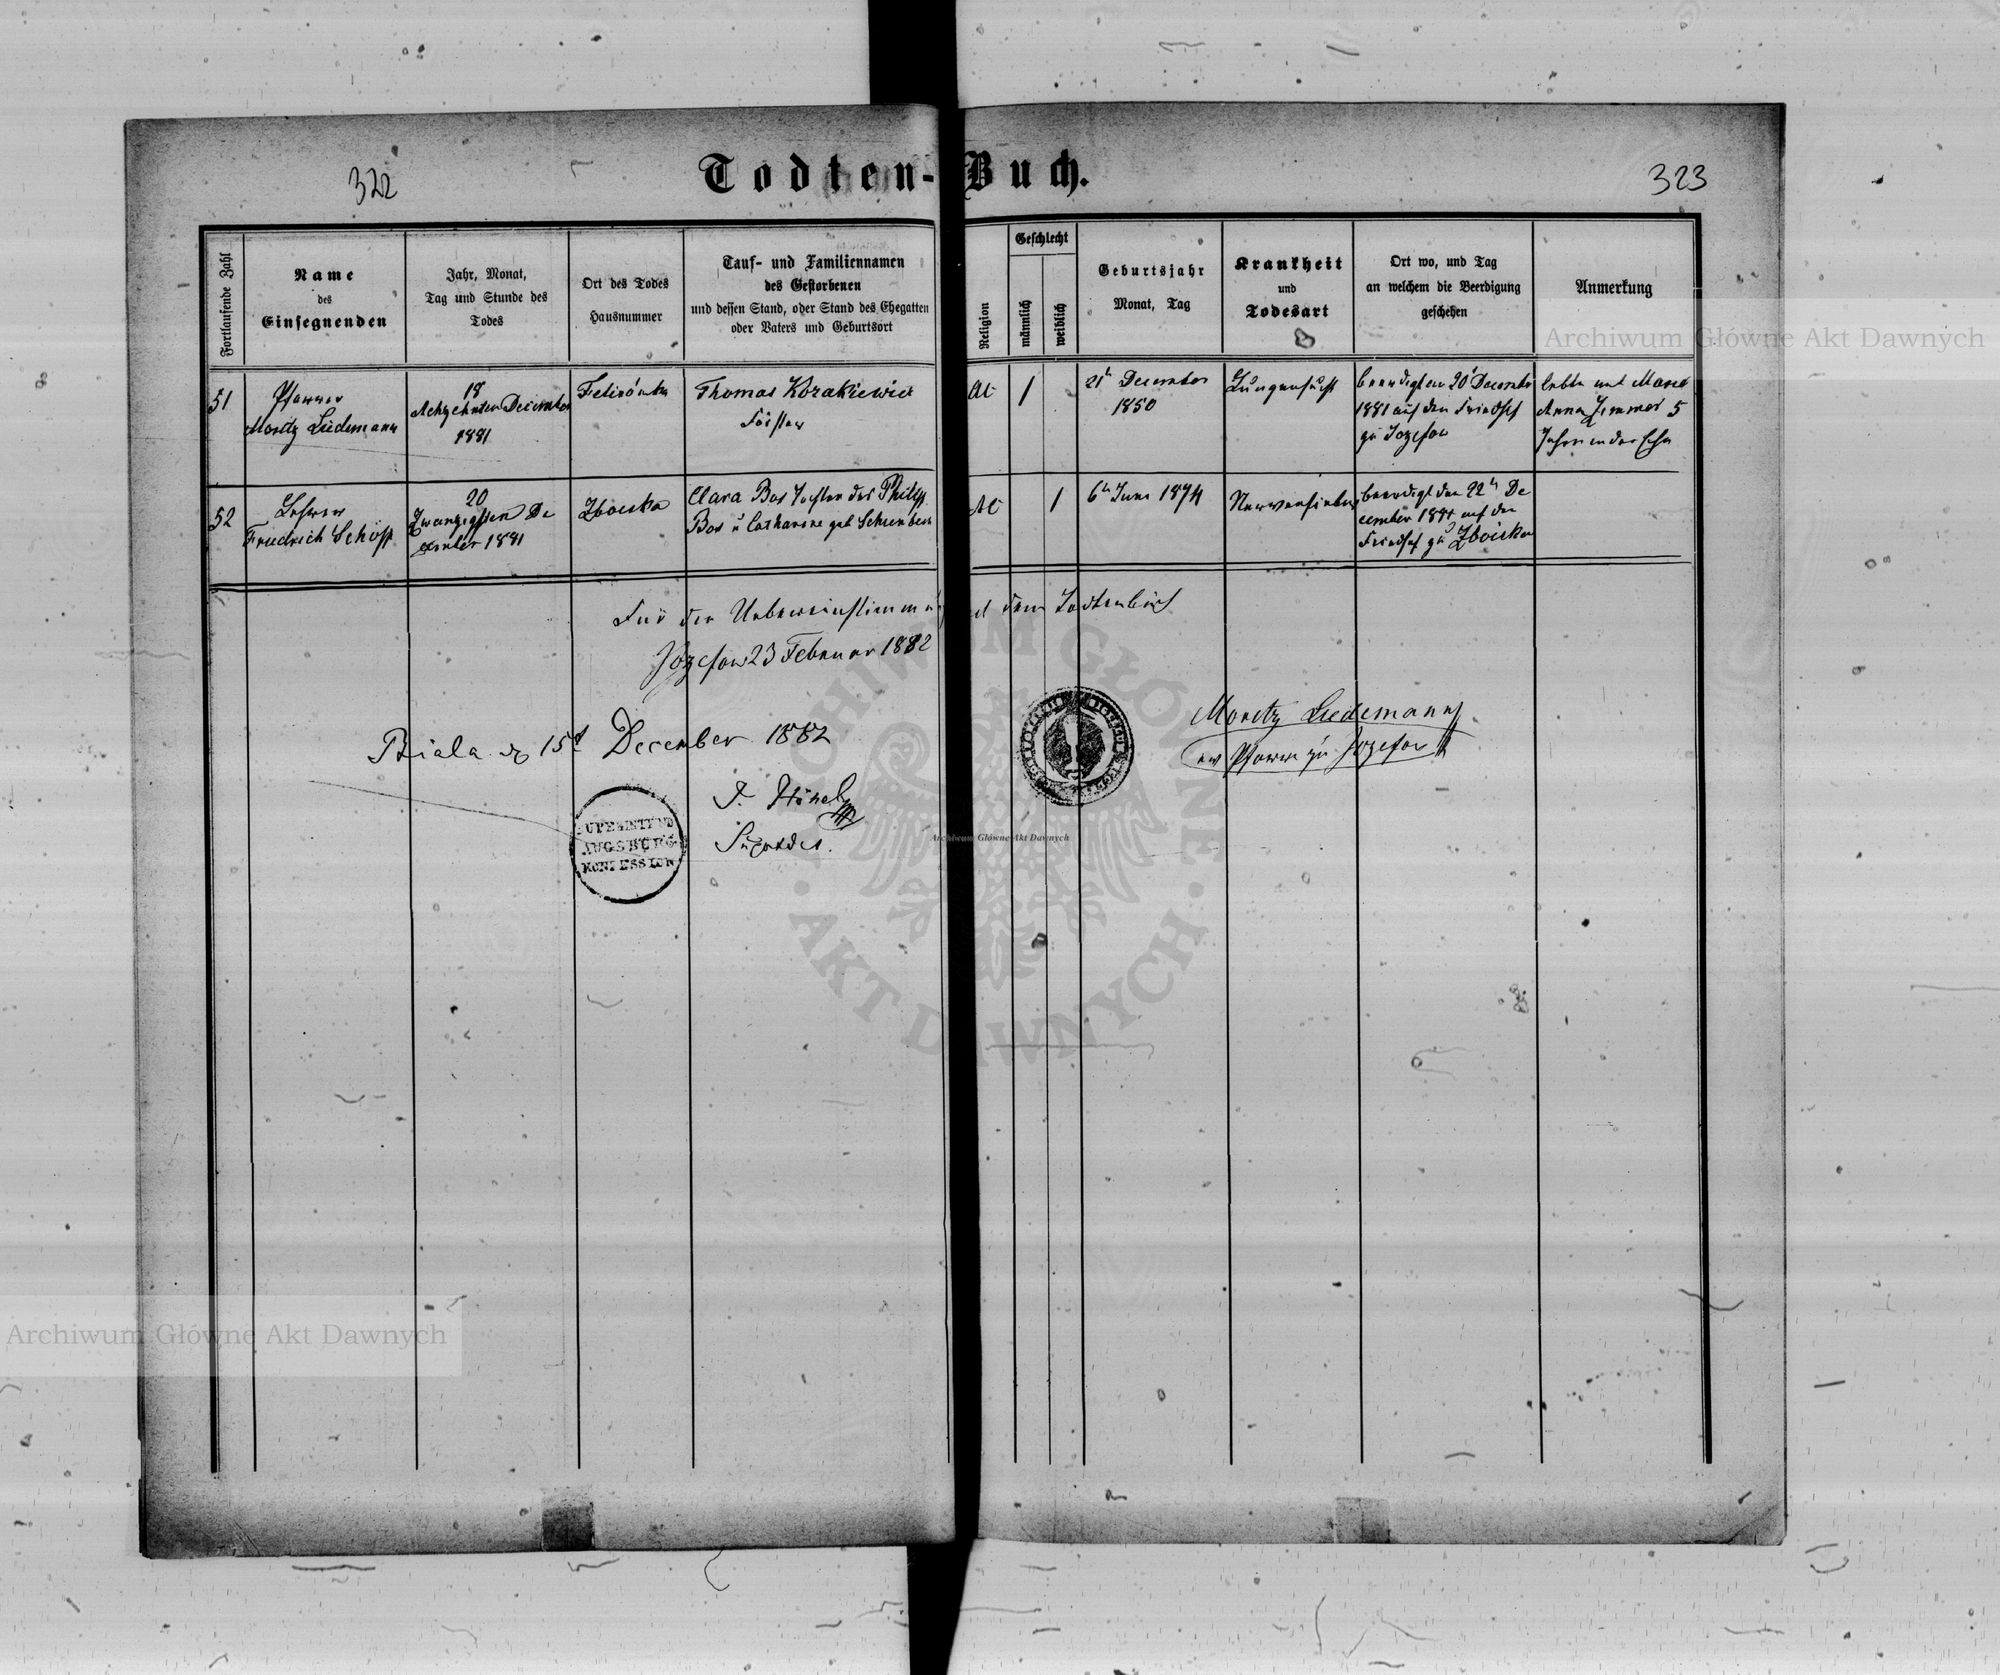 322
Todten-Buch.
323
Fortlaufende Zahl
Name
des
Einsegnenden
Jahr, Monat,
Tag und Stunde des
Todes
Ort des Todes
Hausnummer
Tauf- und Familiennamen
des Gestorbenen
und dessen Stand, oder Stand des Ehegatten
oder Vaters und Geburtsort
Religion
Geschlecht
männlich
weiblich
Geburtsjahr
Monat, Tag
Krankheit
und
Todesart
Ort wo, und Tag
an welchem die Beerdigung
geschehen
Anmerkung
51
Pfarrer
Moritz Liedemann
18
Achzehnten December
1881
Thomas Korakiewicz
Förster
AC
1
21 December
1850
Lungensucht
beerdigt den 20 December
1881 auf dem Friedhof
zu Jozefow
lebte mit
Anna Zimmer 5
Jahre in der Ehe
52
Lehrer
Friedrich Schöpp
20
Zwanzigsten De
cember 1881
Zboiska
Clara Bos Tochter des Philipp
Bos u Catharine geb
AC
1
6 Juni 1874
Nervenfieber
beerdigt den 22 De
cember 1881 auf dem
Friedhof zu Zboiska
Für die Uebereinstimmung mit dem Todtenbuch
Józefow 23 Februar 1882
Moritz Liedemann
ev Pfarrer zu Jozefow
Biala 15 December 1882
SUPERINTEND
AUGSBURG
KONFESSION
J. Hönel
Archiwum Główne Akt Dawnych
Archiwum Główne Akt Dawnych
Archiwum Główne Akt Dawnych
ARCHIWUM GŁÓWNE
AKT DAWNYCH